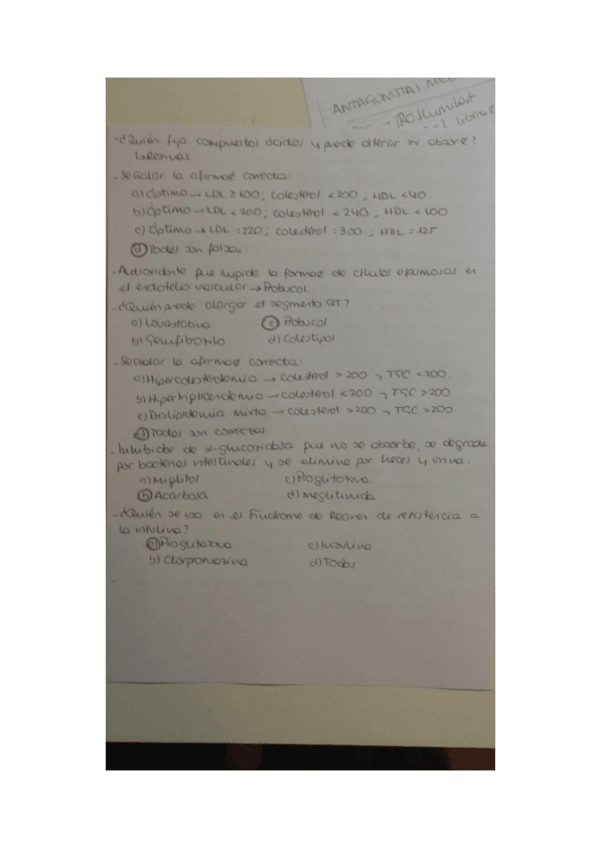 ANTAGONISTAS
→ Roflumilast
- ¿Quién fija compuestos ácidos y puede alterar su absorc?
↳ Resinas.
- Señalar la afirmac correcta:
a) Óptimo → LDL ≥ 100; Colesterol < 200; HDL < 40.
b) Óptimo → LDL < 200; Colesterol < 240; HDL < 100
c) Óptimo → LDL = 220; Colesterol = 300; HDL = 125
d) Todas son falsas.
- Antioxidante que impide la formac de células espumosas en
el endotelio vascular → Probucol.
- ¿Quién puede alargar el segmento QT?
a) Lovastatina c) Probucol
b) Gemfibrozilo d) Colestipol
- Señalar la afirmac correcta:
a) Hipercolesterolemia → Colesterol > 200 y TGC < 200.
b) Hipertrigliceridemia → Colesterol < 200 y TGC > 200
c) Dislipidemia mixta → Colesterol > 200 y TGC > 200
d) Todas son correctas.
- Inhibidor de α-glucosidasa que no se absorbe, se degrada
por bacterias intestinales y se elimina por heces y orina.
a) Miglitol c) Pioglitazona
b) Acarbosa d) Meglitinida
- ¿Quién se usa en el Síndrome de Reaven de resistencia a
la insulina?
a) Pioglitazona c) Insulina
b) Clorpromazina d) Todas